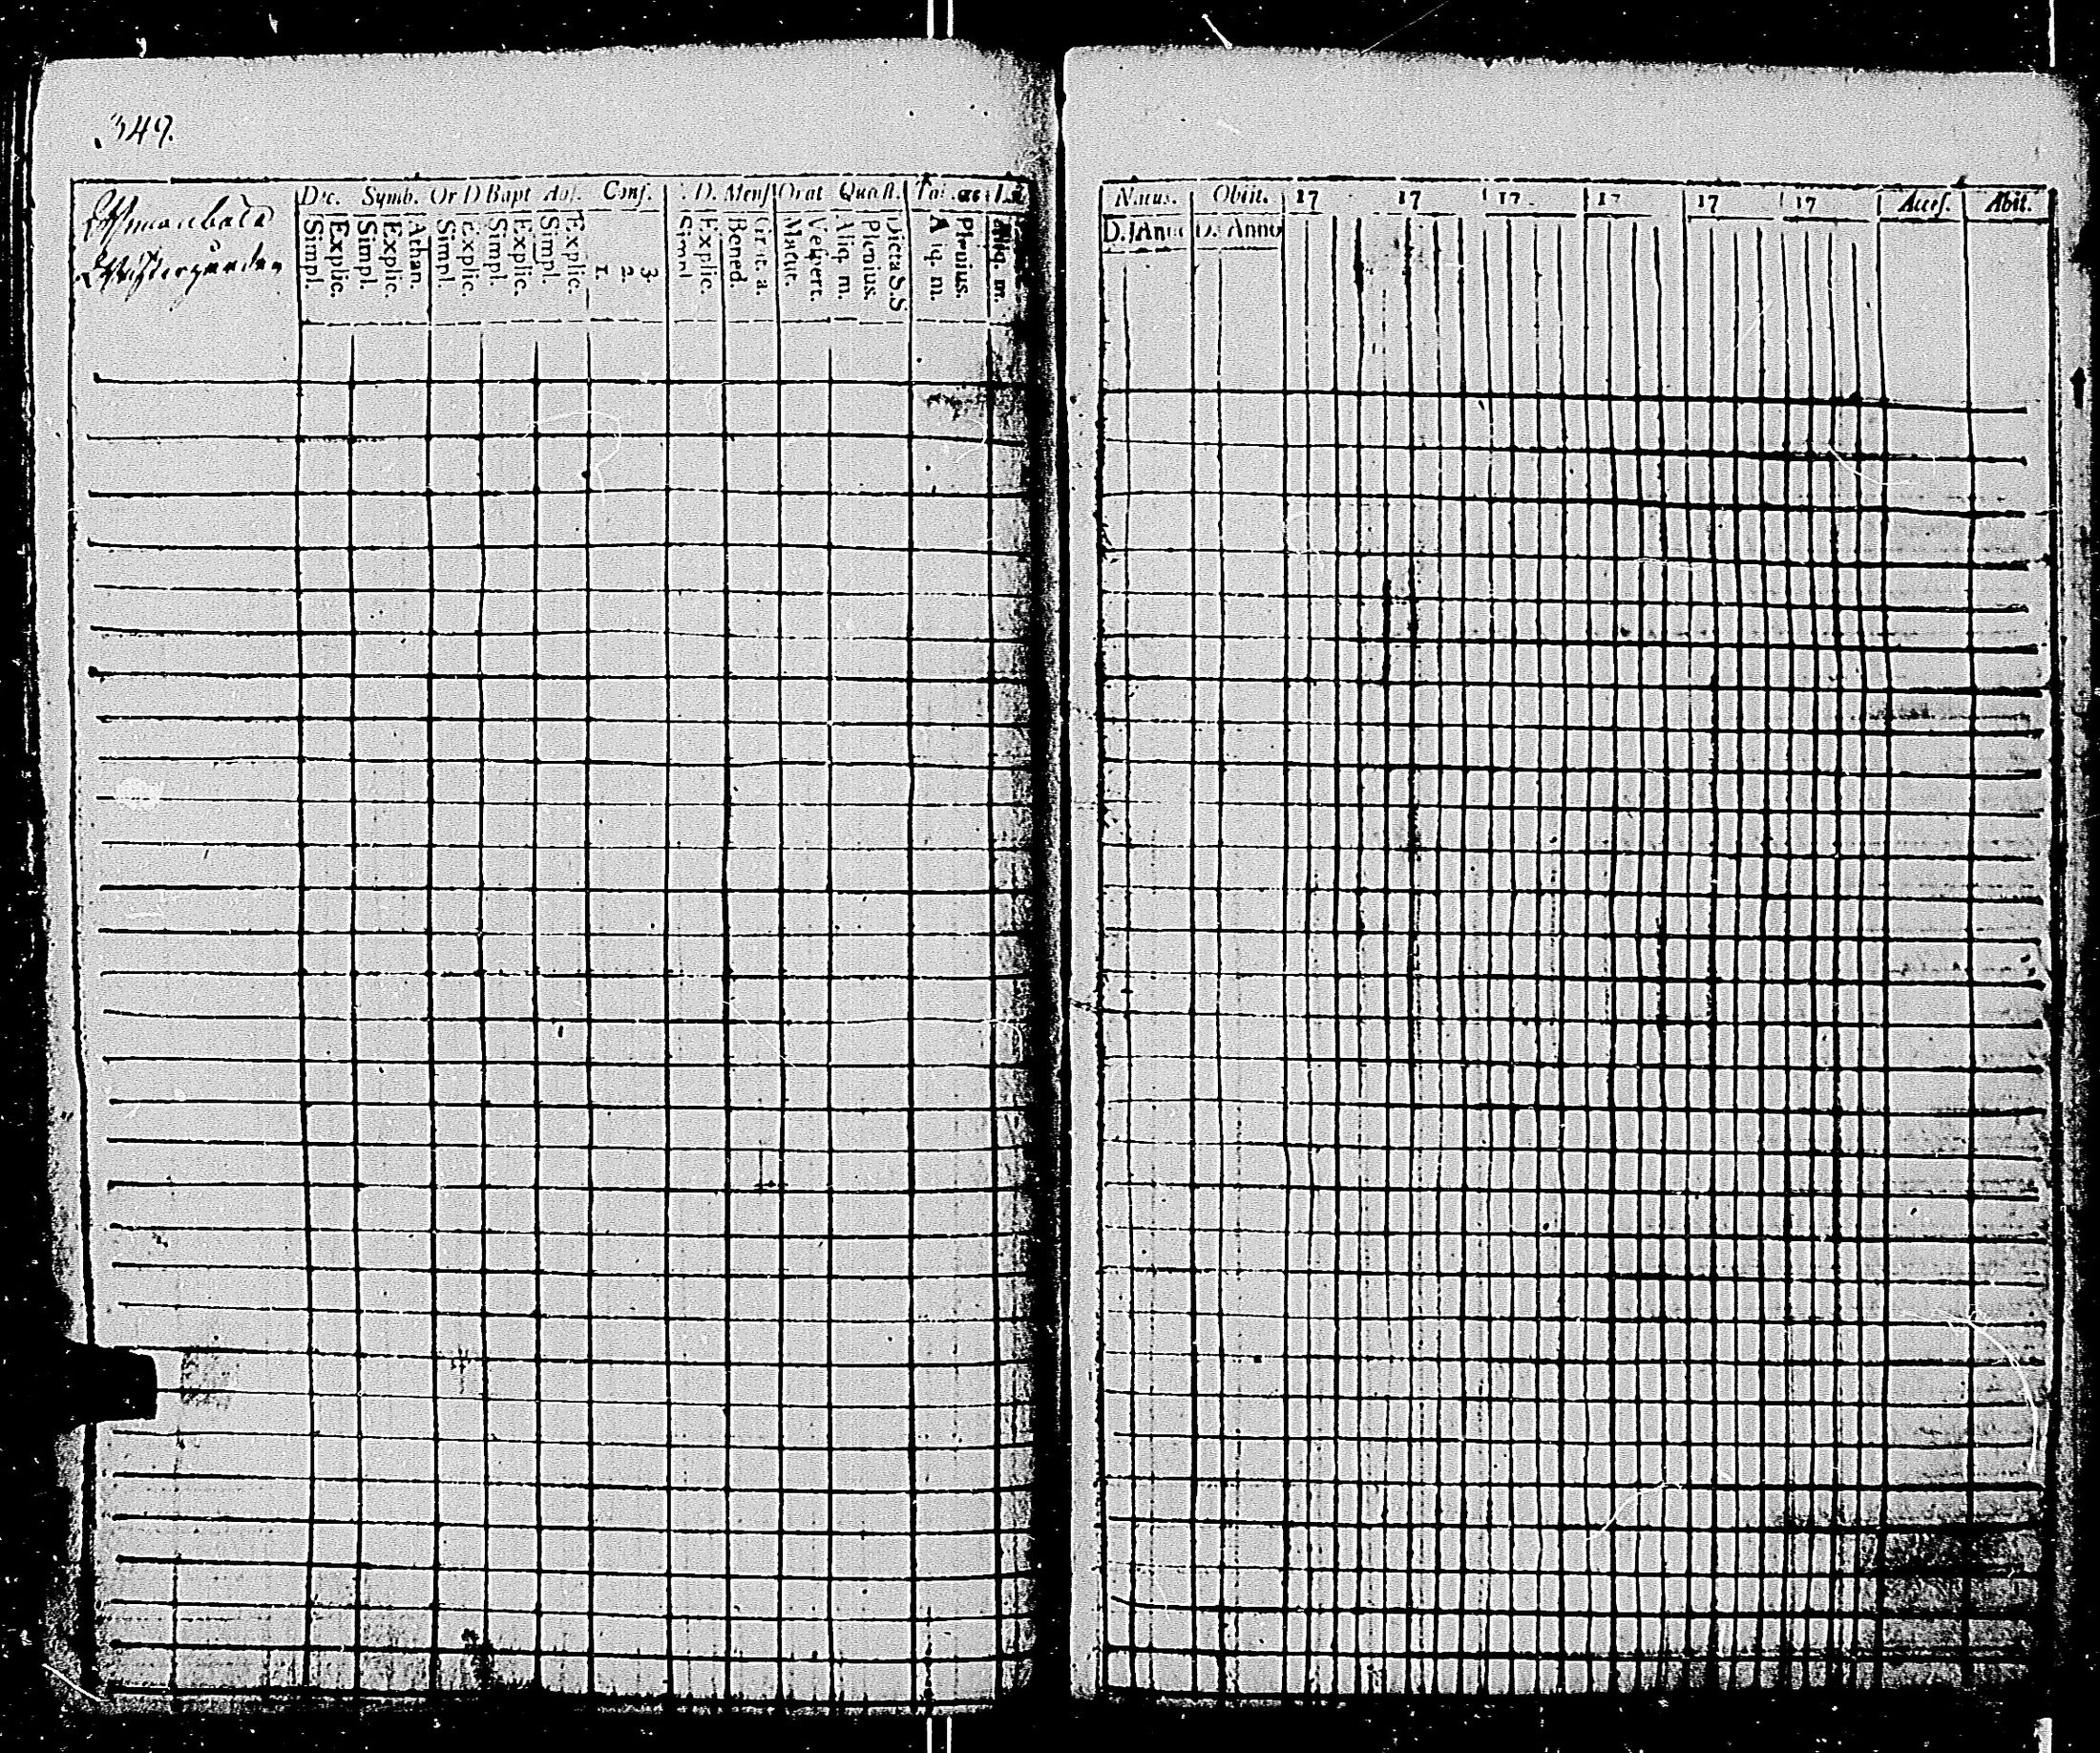 349.
Dec. Symb. Or D Bapt Abs. Conf. D. Mens Orat Quæst.
Simpl. Explic. Simpl. Explic. Athan. Simpl. Explic. Simpl. Explic. Simpl. Explic. 1. 2. 3. Simpl. Explic. Bened. Matut. Vespert. Aliq. m. Plenius. Dicta S.S Aliq. m. Plenius. Aliq. m.
Natus. Obiit. 17 17 17 17 17 17 Acces. Abit.
D. Anno D. Anno